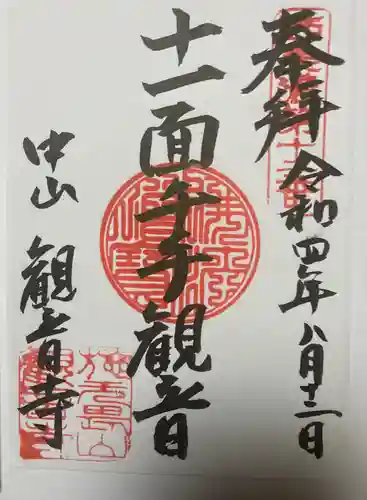 奉拝 令和四年八月十二日
十一面千手観音
中山 観音寺